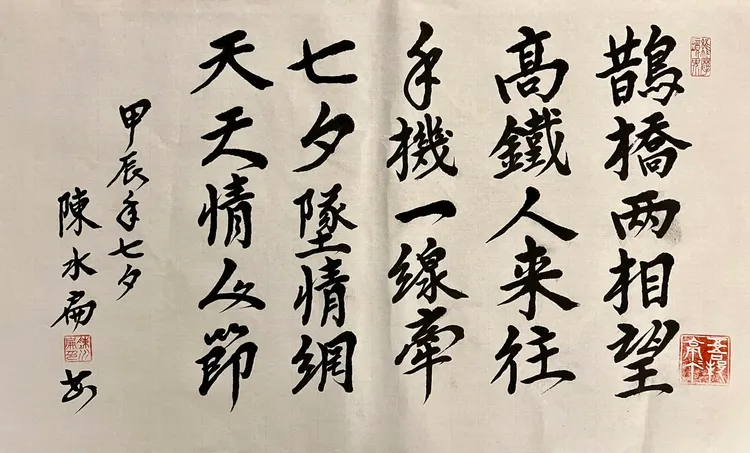 鵲橋两相望
高鐵人来往
手機一線牽
七夕墜情網
天天情人節
甲辰年七夕
陳水扁